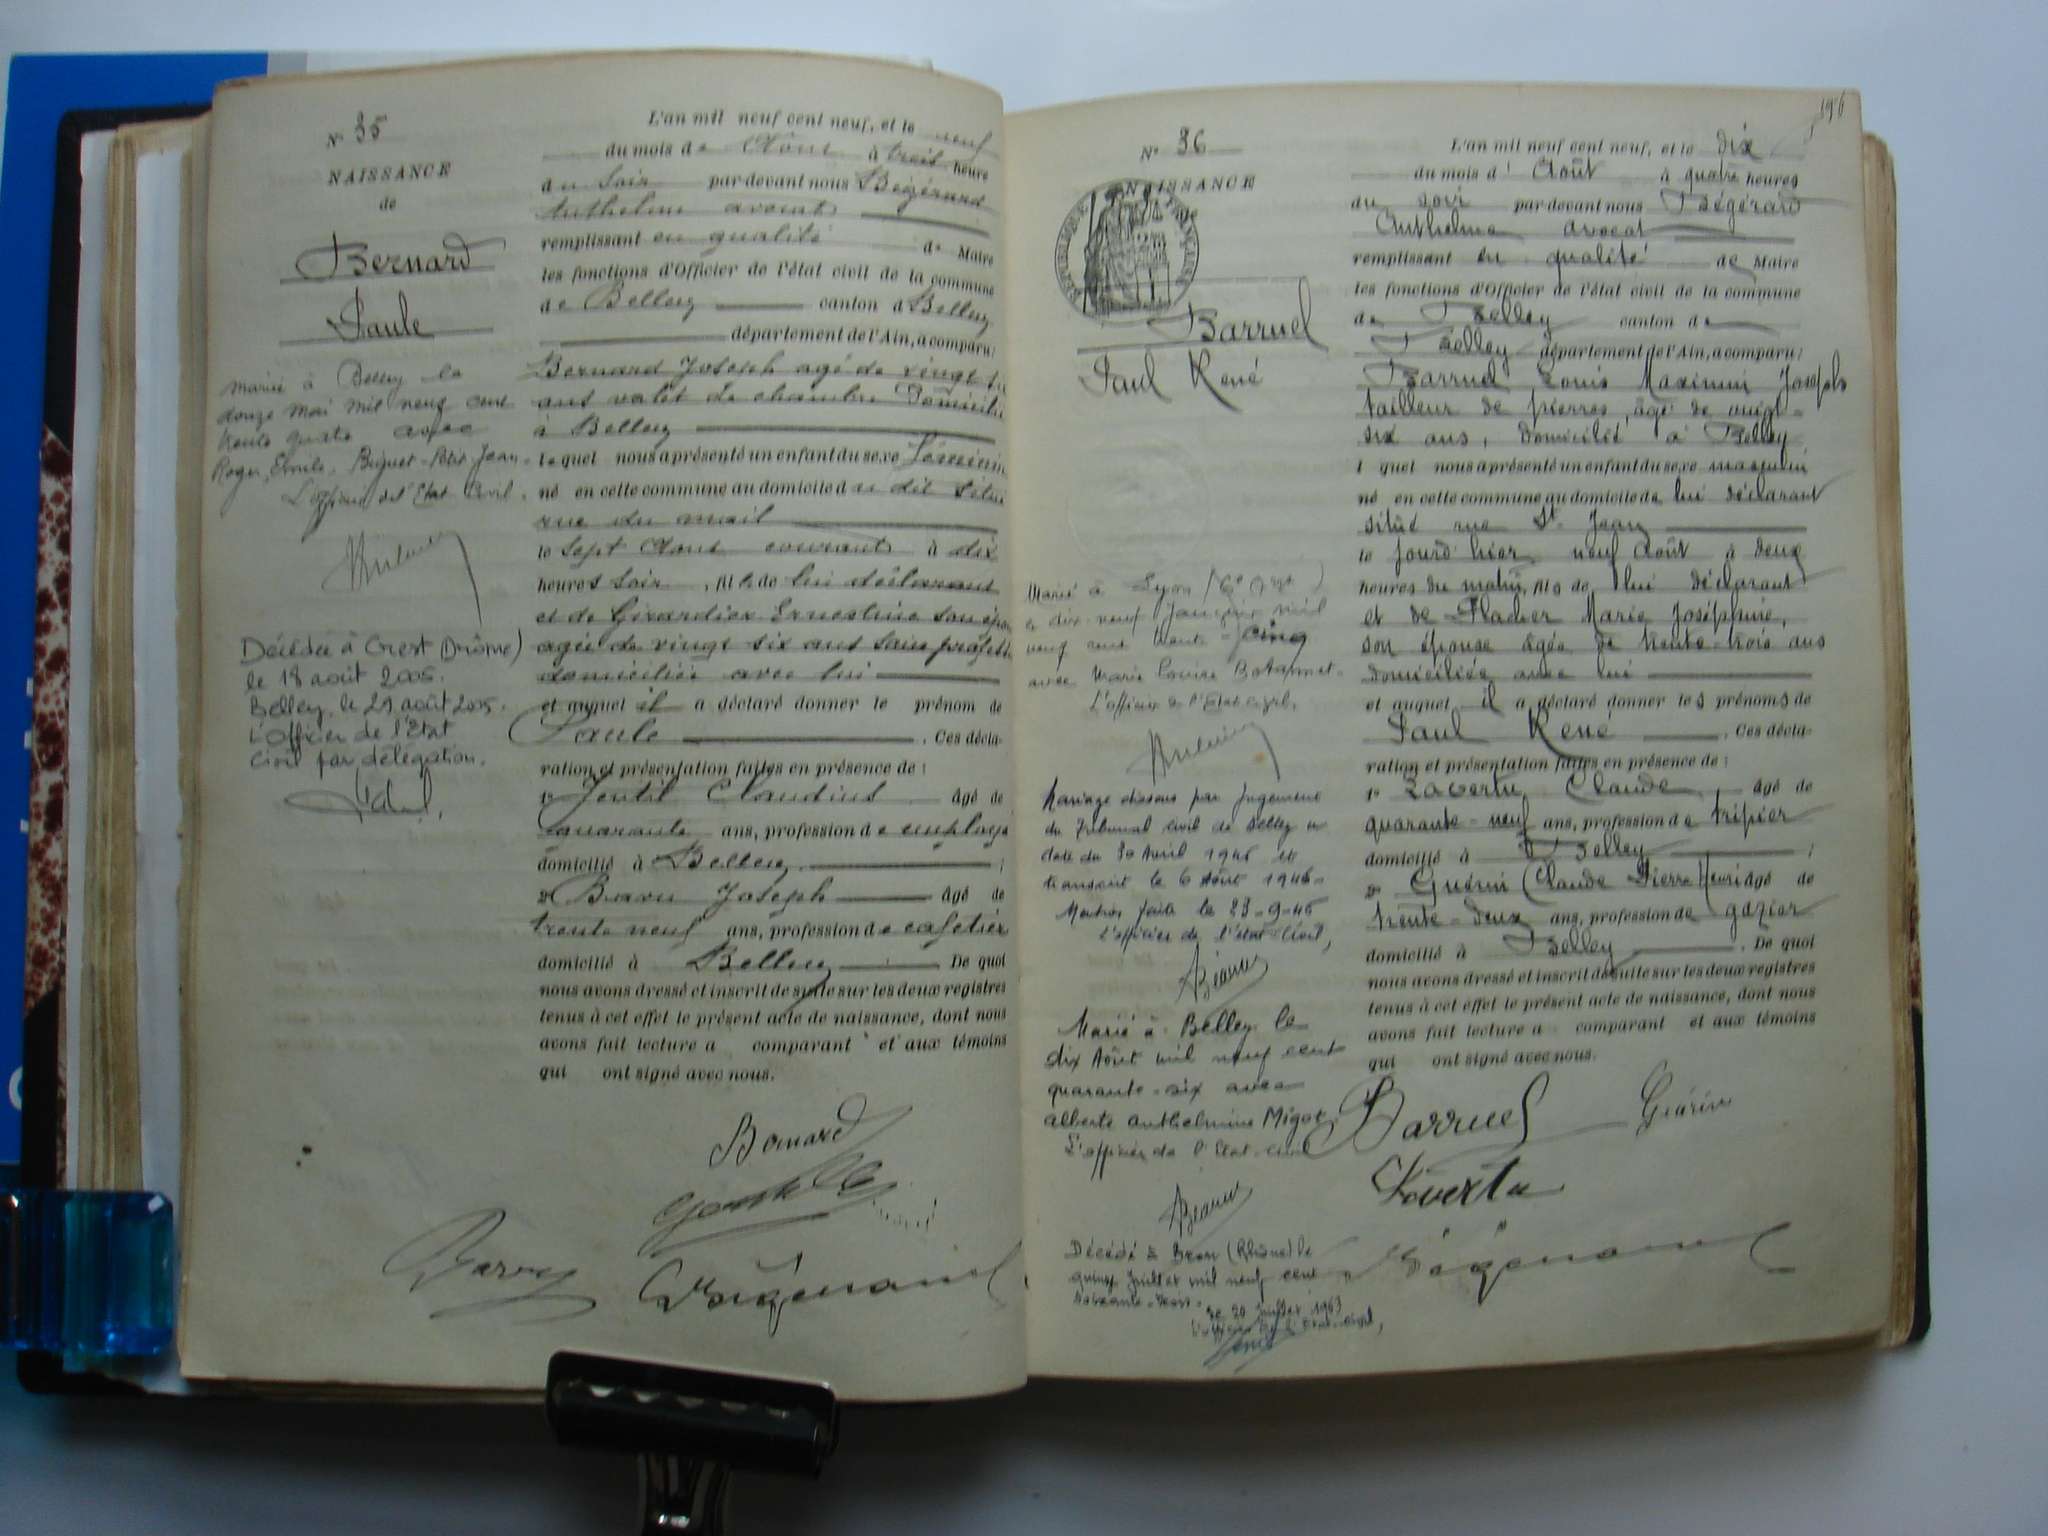 N° 35
NAISSANCE
de
Bernard
Paule
Mariée à Belley le
douze Mai mil neuf cent
trente quatre avec
Roger, Emile, Biguet-Petit-Jean
L'officier de l'Etat Civil.
Décédée à Crest (Drôme)
le 18 août 2005.
Belley, le 29 août 2005.
L'officier de l'Etat
Civil par délégation.
L'an mil neuf cent neuf, et le neuf
du mois de Août à trois heure
du Soir par devant nous Bégérard
Anthelme avocat
remplissant en qualité de Maire
les fonctions d'Officier de l'état civil de la commune
de Belley canton d Belley
département de l'Ain, a comparu:
Bernard Joseph agé de vingt
ans valet de chambre Domicilié
à Belley
lequel nous a présenté un enfant du sexe féminin
né en cette commune au domicile du dit situé
rue du mail
le sept Août courant à dix
heures soir, fils de lui déclarant
et de Girardier Ernestine son
agée de vingt six ans sans
domiciliée avec lui
et auquel il a déclaré donner le prénom de
Paule . Ces décla-
ration et présentation faites en présence de :
1° Jentil Claudius âgé de
quarante ans, profession de employé
domicilié à Belley ;
2° Joseph âgé de
trente neuf ans, profession de cafetier
domicilié à Belley De quoi
nous avons dressé et inscrit de suite sur les deux registres
tenus à cet effet le présent acte de naissance, dont nous
avons fait lecture a comparant et aux témoins
qui ont signé avec nous.
Bernard
196
N° 36
NAISSANCE
REPUBLIQUE FRANÇAISE
Barruel
Paul René
Marié à Lyon (6e Arrt)
le dix neuf Janvier mil
neuf cent trente-cinq
avec Marie Louise
L'officier de l'Etat civil.
Mariage dissous par jugement
du Tribunal civil de Belley en
date du 30 Avril 1946 et
transcrit le 6 Août 1946-
Mention faite le 23-9-46
L'officier de l'état-Civil,
Marié à Belley le
dix Août mil neuf cent
quarante-six avec
alberte anthelmine Migot
L'officier de l'Etat-Civil
Décédé à Bron (Rhône) le
quinze Juillet mil neuf cent
soixante-trois-
Le 20 juillet 1963
L'officier de l'Etat-civil,
L'an mil neuf cent neuf, et le dix
du mois d' Août à quatre heures
du soir par devant nous Bégérard
Anthelme avocat
remplissant en qualité de Maire
les fonctions d'Officier de l'état civil de la commune
de Belley canton de
Belley département de l'Ain, a comparu:
Barruel Louis Maximin Joseph
tailleur de pierres, âgé de vingt-
six ans, domicilié à Belley
l quel nous a présenté un enfant du sexe masculin
né en cette commune au domicile de lui déclarant
situé rue St Jean
le jourd'hier neuf Août à deux
heures du matin, fils de lui déclarant
et de Flacher Marie Joséphine,
son épouse âgée de trente-trois ans
domiciliée avec lui
et auquel il a déclaré donner les prénoms de
Paul René . Ces décla-
ration et présentation faites en présence de :
1° Lavertu, Claude, âgé de
quarante-neuf ans, profession de tripier
domicilié à Belley ;
2° Guérin (Claude Pierre Henri âgé de
trente-deux ans, profession de gazier
domicilié à Belley . De quoi
nous avons dressé et inscrit de suite sur les deux registres
tenus à cet effet le présent acte de naissance, dont nous
avons fait lecture a comparant et aux témoins
qui ont signé avec nous.
Barruel Guérin
Lavertu